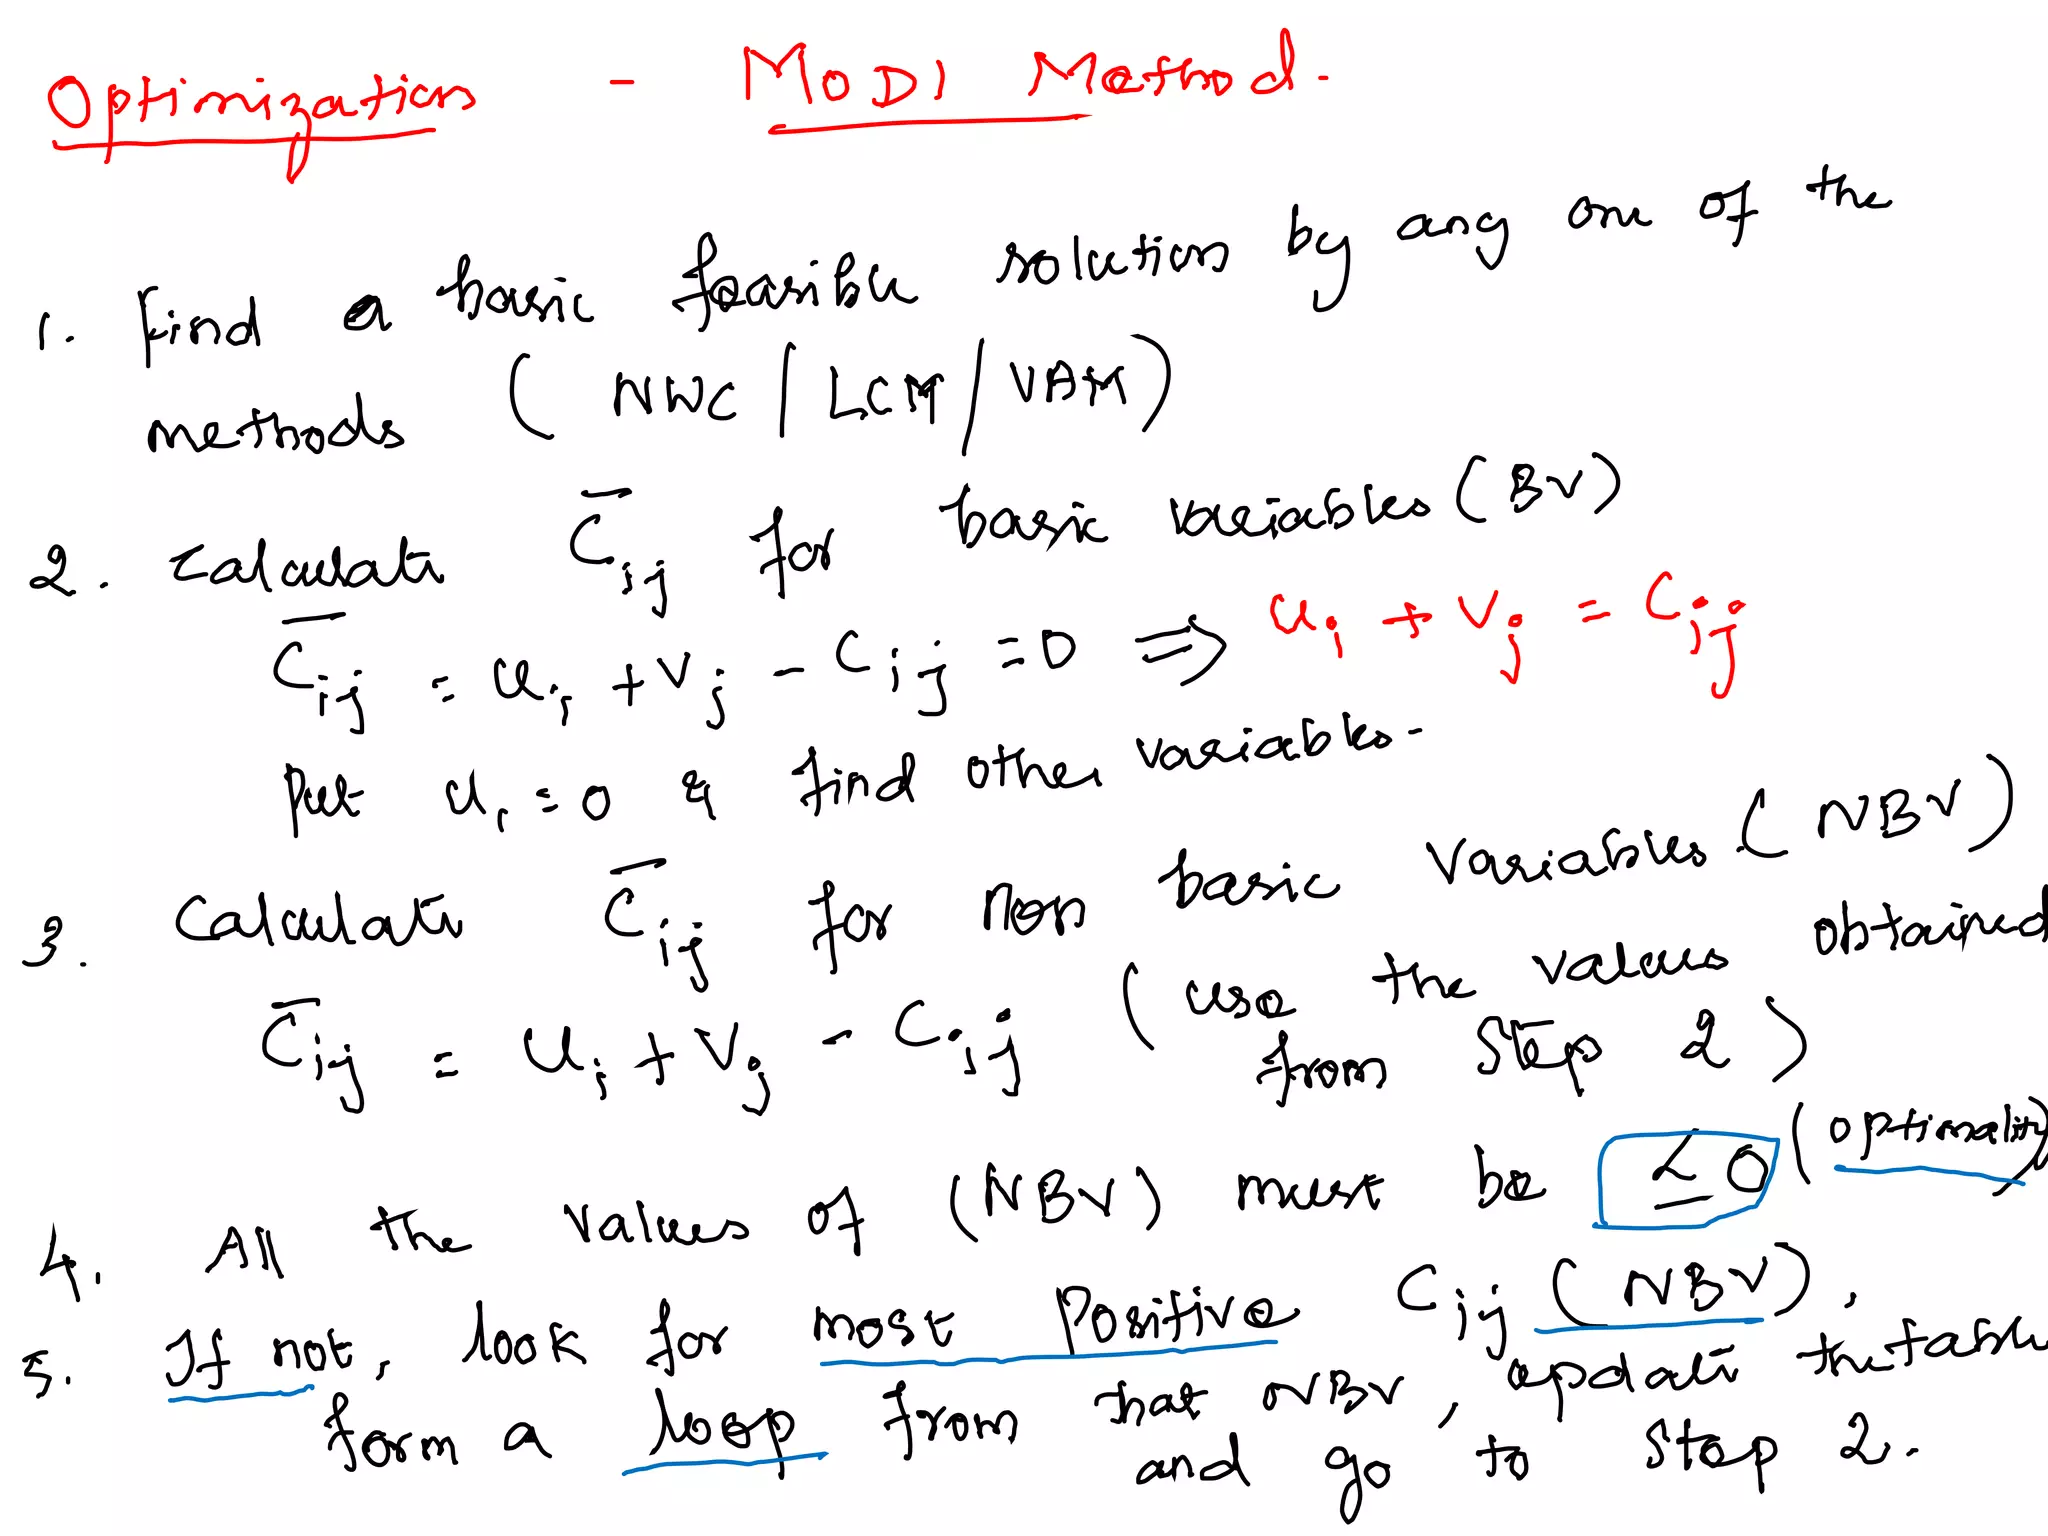 Optimization - MODI Method.
1. Find a basic feasible solution by any one of the
methods ( NWC / LCM / VAM )
2. Calculate C̅ij for basic variables (BV)
C̅ij = ui + vj - cij = 0 ⇒ ui + vj = cij
Put u1 = 0 & find other variables.
3. Calculate C̅ij for non basic variables (NBV)
C̅ij = ui + vj - cij ( use the values obtained
from Step 2 )
4. All the values of (NBV) must be ≤ 0 (optimality)
5. If not, look for most positive Cij (NBV),
form a loop from that NBV, update the table
and go to Step 2.